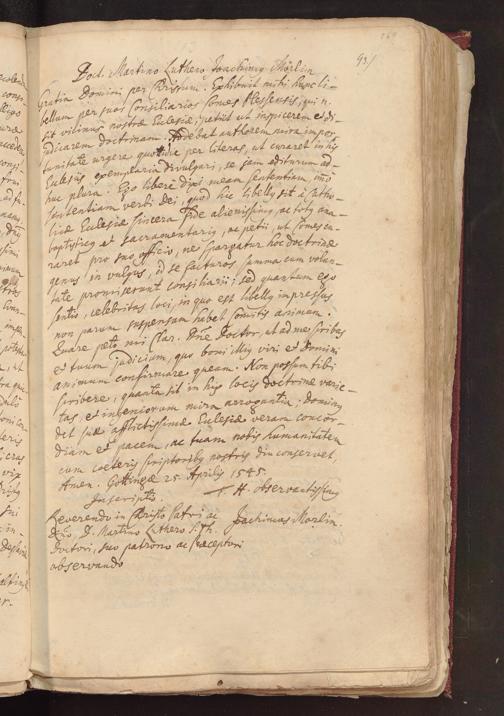 93/
Doct. Martino Luthero Joachimus Mörlin
Gratia Domini per Christum. Exhibuit mihi hunc li-
bellum per suos Consiliarios Comes Hessensis, qui n.
sit vicinus nostræ Ecclesiæ, petiit ut inspicerem et di-
judicarem doctrinam. Addebat authorem mira impor-
tunitate urgere quotidie per literas, ut curaret in his
Ecclesiis exemplaria divulgari, se jam editurum ad-
huc plura. Ego libere dixi meam sententiam, imò
sententiam verbi Dei, quod hic libellus sit à Catho-
licæ Ecclesiæ sincera fide alienissimus, ac totus ana-
baptisticus et sacramentarius, ac petii, ut Comes cu-
raret pro suo officio, ne spargatur hoc doctrinæ
genus in vulgus, id se facturos summa cum volun-
tate promiserunt consiliarii; sed quantum ego
sentio, celebritas loci, in quo est libellus impressus
non parum suspensam habet Comitis animam.
Quare peto mi Clar. Dne Doctor, ut ad me scribas
et tuum judicium, quo boni illius viri et Domini
animum confirmare queam. Non possum tibi
scribere, quanta sit in his locis doctrinæ varie-
tas, et ingeniorum mira arrogantia. Dominus
det suæ afflictissimæ Ecclesiæ veram concor-
diam et pacem, ac tuam nobis humanitatem
cum cæteris scriptoribus nostris diu conservet
Amen. Gottingæ 25 Aprilis 1545.
Inscriptio. T. H. observantissimus
Reverendo in Christo Patri ac Joachimus Morlin.
Dno, D. Martino Luthero S. Th.
Doctori, suo patrono ac præceptori
observando